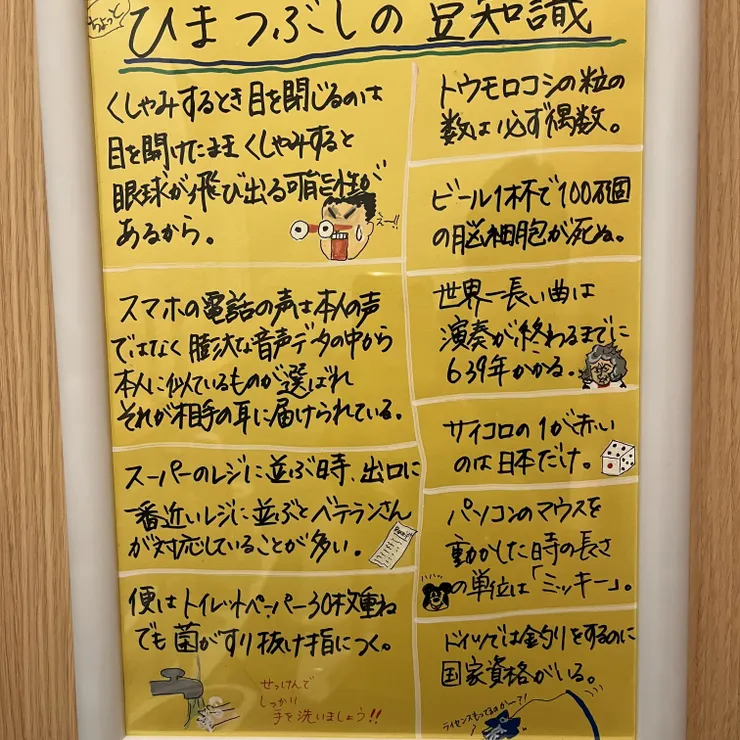 ちょっと
ひまつぶしの豆知識
くしゃみするとき目を閉じるのは
目を開けたままくしゃみすると
眼球が飛び出る可能性が
あるから。
えー!!
スマホの電話の声は本人の声
ではなく膨大な音声データの中から
本人に似ているものが選ばれ
それが相手の耳に届けられている。
スーパーのレジに並ぶ時、出口に
一番近いレジに並ぶとベテランさん
が対応していることが多い。
便はトイレットペーパー30枚重ね
でも菌がすり抜け指につく。
せっけんで
しっかり
手を洗いましょう!!
トウモロコシの粒の
数は必ず偶数。
ビール1杯で100万個
の脳細胞が死ぬ。
世界一長い曲は
演奏が終わるまでに
639年かかる。
サイコロの1が赤い
のは日本だけ。
パソコンのマウスを
動かした時の長さ
の単位は「ミッキー」。
ハハッ
ドイツでは釣りをするのに
国家資格がいる。
ライセンスもってるのかー?!